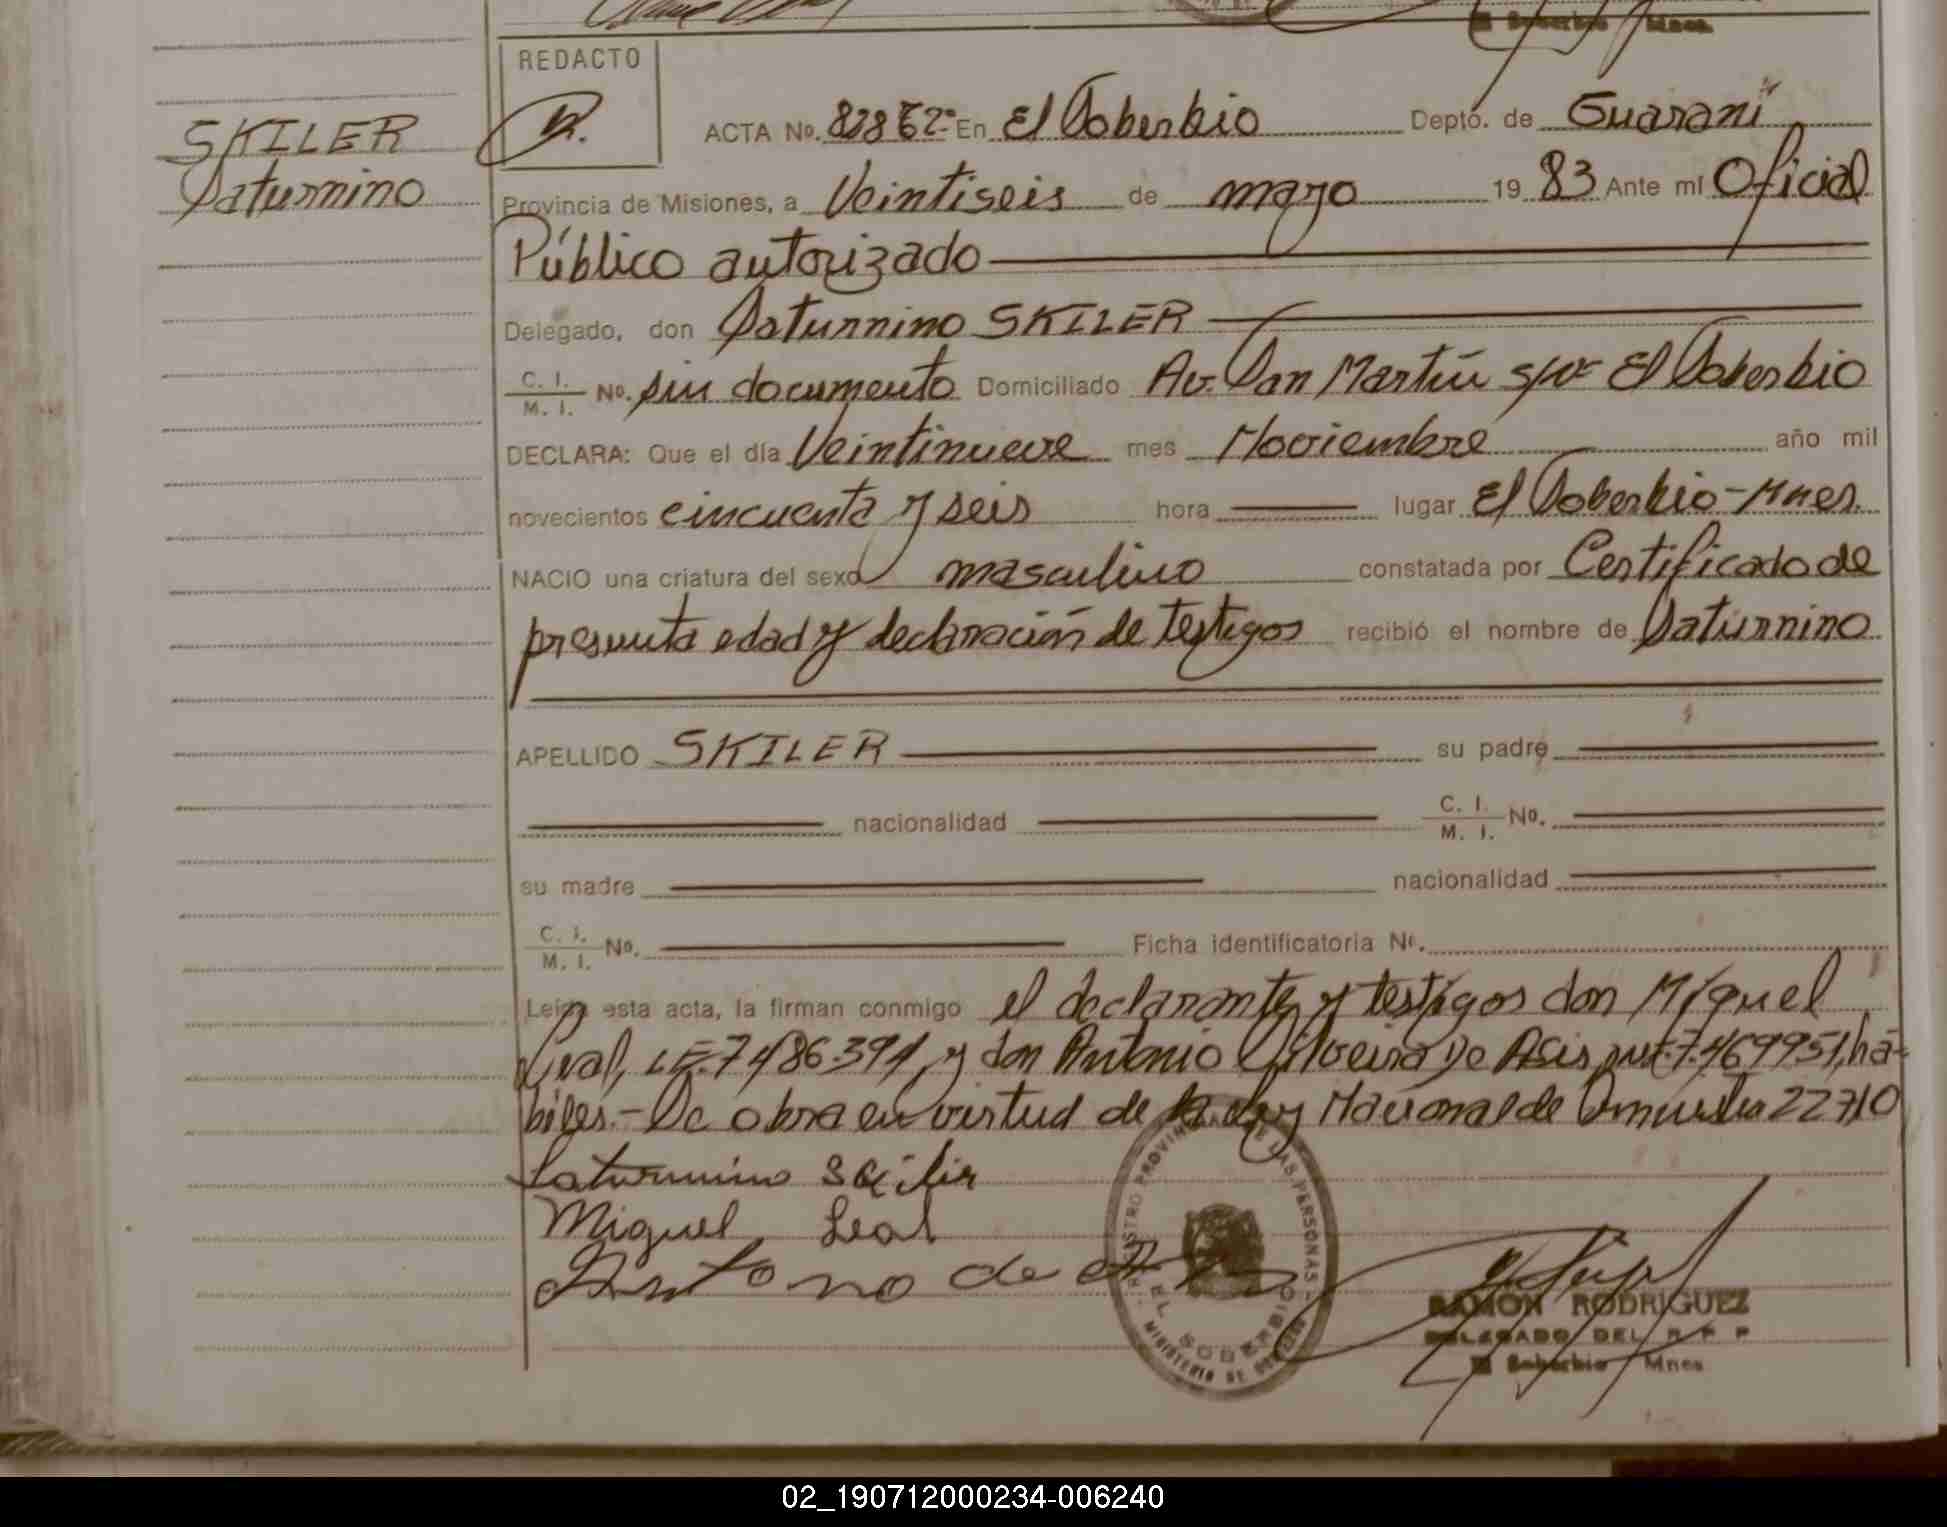 REDACTO
SKILER
Saturnino
ACTA No. En El Soberbio Depto. de Guaraní
Provincia de Misiones, a Veintiseis de mayo 19 83 Ante mí Oficial
Público autorizado
Delegado, don Saturnino SKILER
C. I. / M. I. No. sin documento Domiciliado Av. San Martín s/nº El Soberbio
DECLARA: Que el día Veintinueve mes Noviembre año mil
novecientos cincuenta y seis hora lugar El Soberbio-Mnes.
NACIO una criatura del sexo masculino constatada por Certificado de
presunta edad y declaración de testigos recibió el nombre de Saturnino
APELLIDO SKILER su padre
nacionalidad C. I. / M. I. No.
su madre nacionalidad
C. I. / M. I. No. Ficha identificatoria Nº.
Leída esta acta, la firman conmigo el declarante y testigos don Miguel
LE. 7.486.391, y don Antonio Silveira De Asis 7.469951, há-
biles.- Se obra en virtud de la Ley Nacional de Amnistia 22710
Saturnino
Miguel Leal
de
REGISTRO PROVINCIAL DE LAS PERSONAS
EL SOBERBIO
MINISTERIO DE GOBIERNO
RAMON RODRIGUEZ
DELEGADO DEL R P P
El Soberbio Mnes
02_190712000234-006240